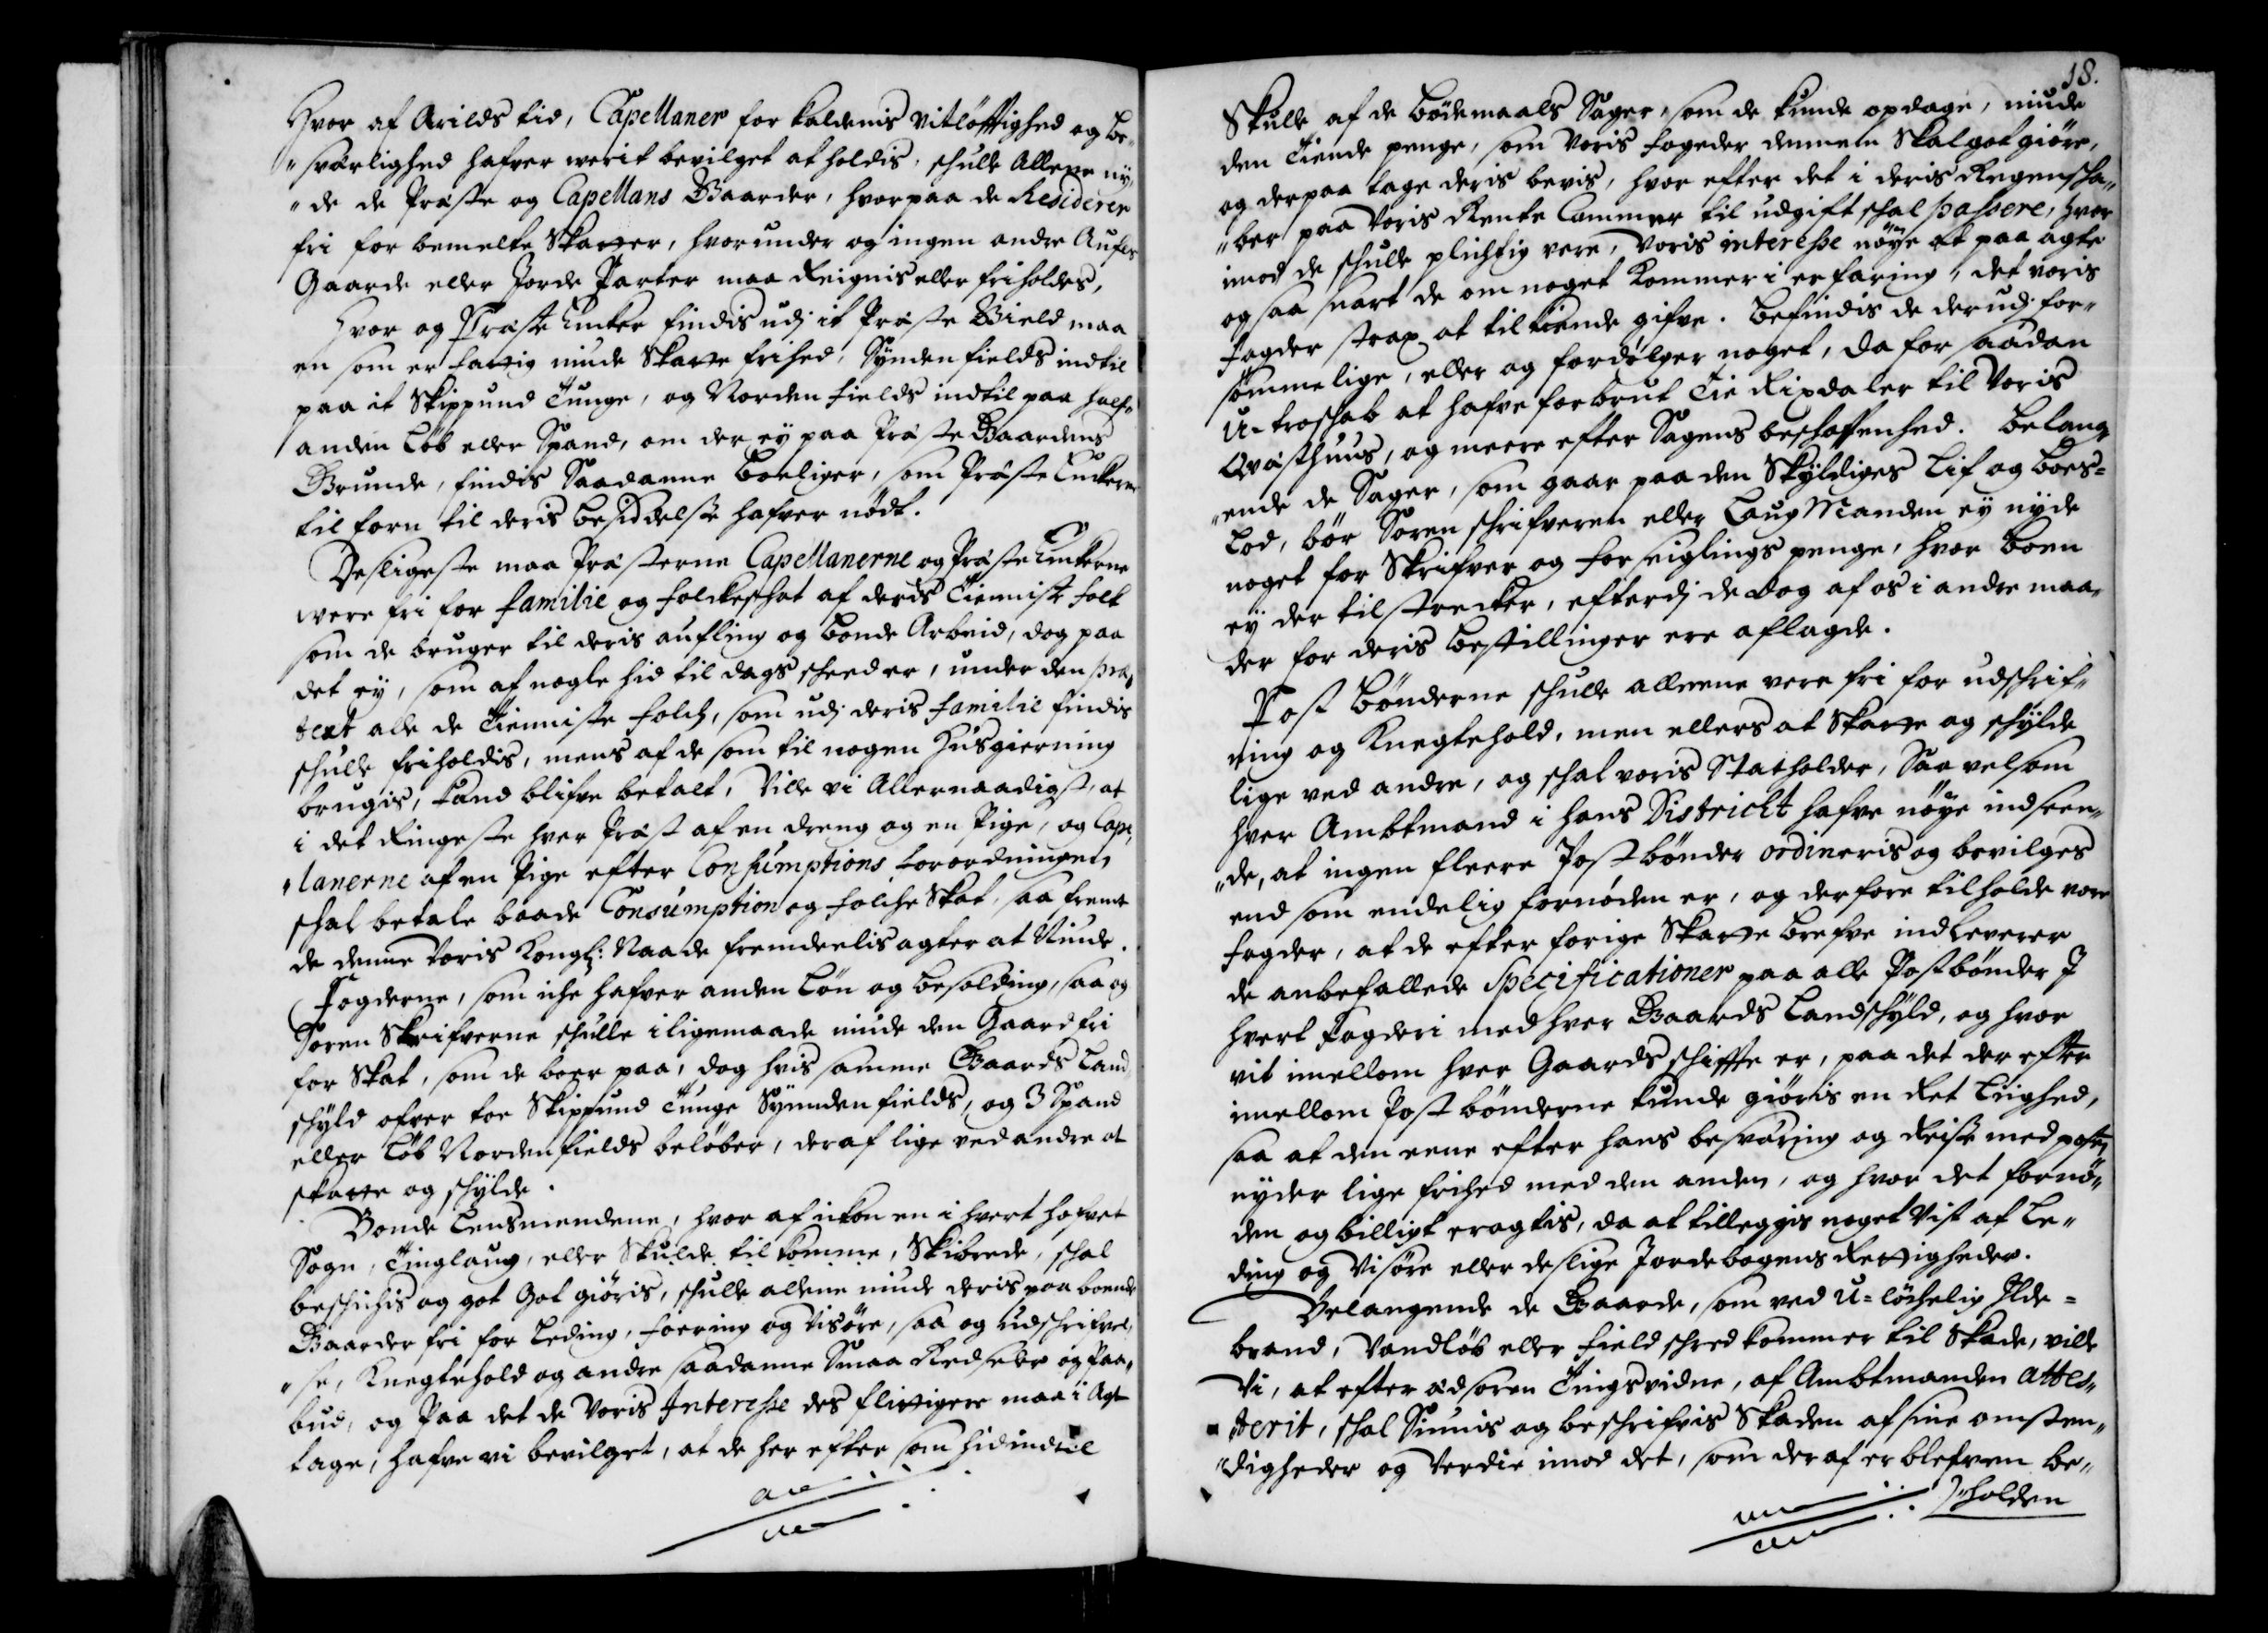 Hvor af Arilds tid, Capellaner for kaldenis vitløftighed og be-
"sværlighed hafver werit bevilget at holdis, schulle Allene ny-
"de de Præste og Capellans Gaarder, hvorpaa de Residerer
fri for bemelte Skatter, hvorunder og ingen andre Aufls
Gaarde eller Jorde Parter maa Reignis eller friholdes,
Hvor og Præste Encker findis udj it Præste Gield maa
en som er fattig niude Skatte frihed, Synden fields indtil
paa it Skippund Tunge, og Norden fields indtil paa half-
anden Løb eller Spand, om der ey paa Præste Gaardens
Grunde, findis Saadanne boeliger, som Præste Enckerne
til forn til deris besiddelse hafver nødt.
Desligeste maa Præsterne Capellanerne og Præste Enckerne
were fri for familie og folckeschat af deris Tienniste folk
som de bruger til deris aufling og bonde Arbeid, dog paa
det ey, som af nogle hid til dags scheed er, under den præ-
text alle de Tienniste folch, som udj deris familie findis
schulle friholdis, mens af de som til nogen Husgierning
brugis, kand blifve betalt, Ville vi Allernaadigst, at
i det Ringeste hver Præst af en dreng og en Pige, og Capel-
"lanerne af en Pige efter Consumptions forordningen,
schal betale baade Consumption og folche Skat, saa fremt
de denne voris Kongl: Naade fremdeelis agter at Niude.
Fogderne, som iche hafver anden Løn og besolding, saa og
Soren Skrifverne schulle i ligemaade niude den Gaard fri
for Skat, som de boer paa, dog hvis samme Gaards Land
schyld ofver toe Skippund Tunge Synnden fields, og 3 Spand
eller Løb Nordenfields beløber, deraf lige ved andre at
skatte og schylde.
Bonde Lensmendene, hvor af ickon en i hvert hofvet
Sogn, Tinglaug, eller Skulde til komme, Skibrede, schal
beschichis og got Got giøris, schulle allene niude deris paa boende
Gaarder fri for Leding, foering og Visøre, saa og udschrifvel-
"se, Knegtehold og andre saadanne Smaa Redsler og Paa-
bud, og Paa det de voris Interesse des flittigere maa i Agt
tage, hafve vi bevilget, at de her efter som hid indtil
18.
Skulle af de bødemaals Sager, som de kunde opdage, niude
den Tiende penge, som Voris fogeder dennem Skal got giøre,
og derpaa tage deris bevis, hvor efter det i deris Regenscha-
"ber paa Voris Rente Cammer til udgift schal passere, hvor
imod de schulle plichtig vere, Voris interesse nøye at paa agte
og saa snart de om noget kommer i erfaring, det voris
fogder strax at tilkiende gifve. Befindis de derudj for-
sømmelige, eller og fordølger noget, da for saadan
U-troschab at hafve forbrut Tie Rixdaler til Voris
Qvæsthuus, og meere efter Sagens beschaffenhed. Belang-
"ende de Sager, som gaar paa den Skyldiges Lif og boes-
Lod, bør Soren schrifveren eller Laug Manden ey nyde
noget for Skrifver og forseiglings penge, hvor boen
ey der til strecker, efterdj de dog af os i andre maa-
der for deris bestillinger ere aflagde.
Post Bønderne schulle alleene vere fri for udschrif-
ning og Knegtehold, men ellers at Skatte og schylde
lige ved andre, og schal voris Statholder, Saa vel som
hver Ambtmand i hans District hafve nøye indseen-
"de, at ingen fleere Postbønder ordineris og bevilges
end som endelig fornøden er, og derfore tilholde vore
fogder, at de efter forige Skatte brefve indleverer
de anbefallede Specificationer paa alle Postbønder J
hvert Fogderi med hver Gaards Landschyld, og hvor
vit imellom hver Gaards schifte er, paa det der efter
imellom Postbønderne kunde giøris en Ret Liighed,
saa at den eene efter hans besværing og Reise med posten
nyder lige frihed med den anden, og hvor det fornø-
den og billigt eragtis, da at tilleggis noget Vist af Le-
ding og Visøre eller deslige Jordebogens Rettigheder.
Belangende de Gaarde, som ved U-løchelig Ilde-
brand, Vandløb eller field schred kommer til Skade, ville
Vi, at efter ædsoren Tingsvidne, af Ambtmanden attes-
terit, schal Siunis og beschrifvis Skaden af sine omsten-
"digheder og Verdie imod det, som deraf er blefven be-
"holden